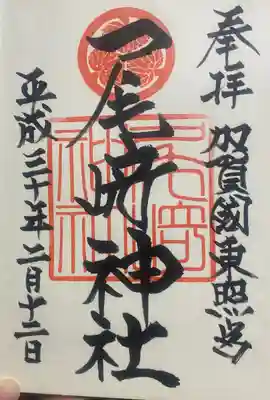 奉拝
加賀國東照宮
尾﨑神社
尾﨑
神社
平成三十年二月十二日